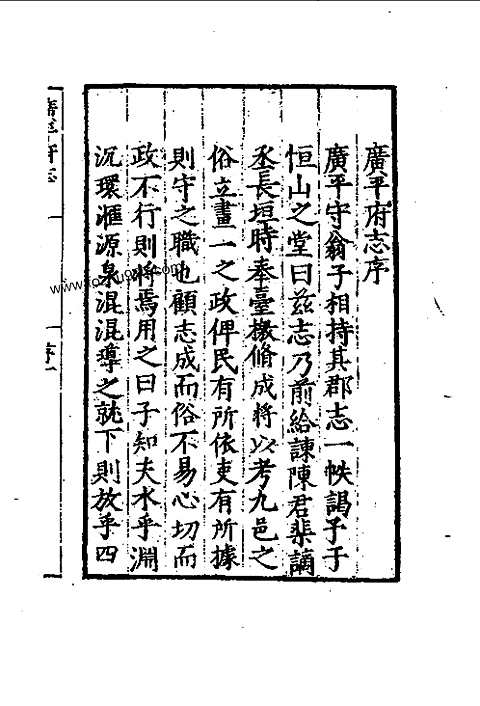 廣平府志序
廣平守翁子相持其郡志一帙謁予于
恒山之堂曰茲志乃前給諫陳君棐謫
丞長垣時奉臺檄脩成將以考九邑之
俗立畫一之政俾民有所依吏有所據
則守之職也顧志成而俗不易心切而
政不行則將焉用之曰子知夫水乎淵
沉環滙源泉混混導之就下則放乎四
廣平府志
序一